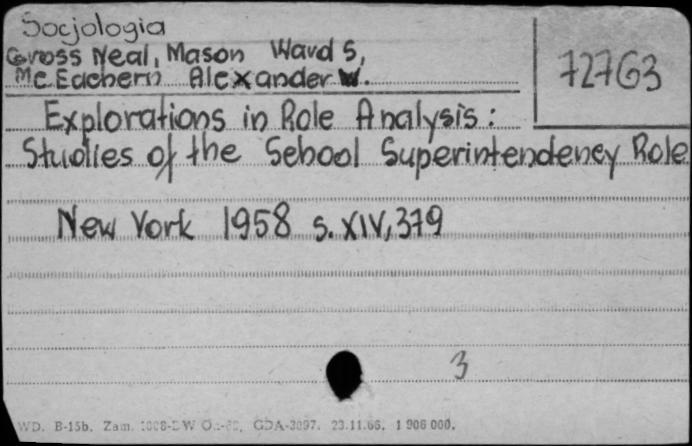 Socjologia
Gross Neal, Mason Ward S,
Mc Eachern Alexander W.
72763
Explorations in Role Analysis:
Studies of the School Superintendency Role
New York 1958 s. XIV, 379
3
WD. B-15b. Zam. GDA-3097. 23.11.66. 1 906 000.